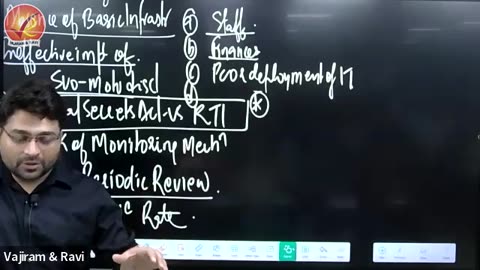 of Basic Infrastr
ineffective impt of
Suo-motu discl
Secrets Act vs RTI
of Monitoring Mechn
Periodic Review
Rate.
a Staff.
b Finances
c Poor deployment of IT
d
Vajiram & Ravi